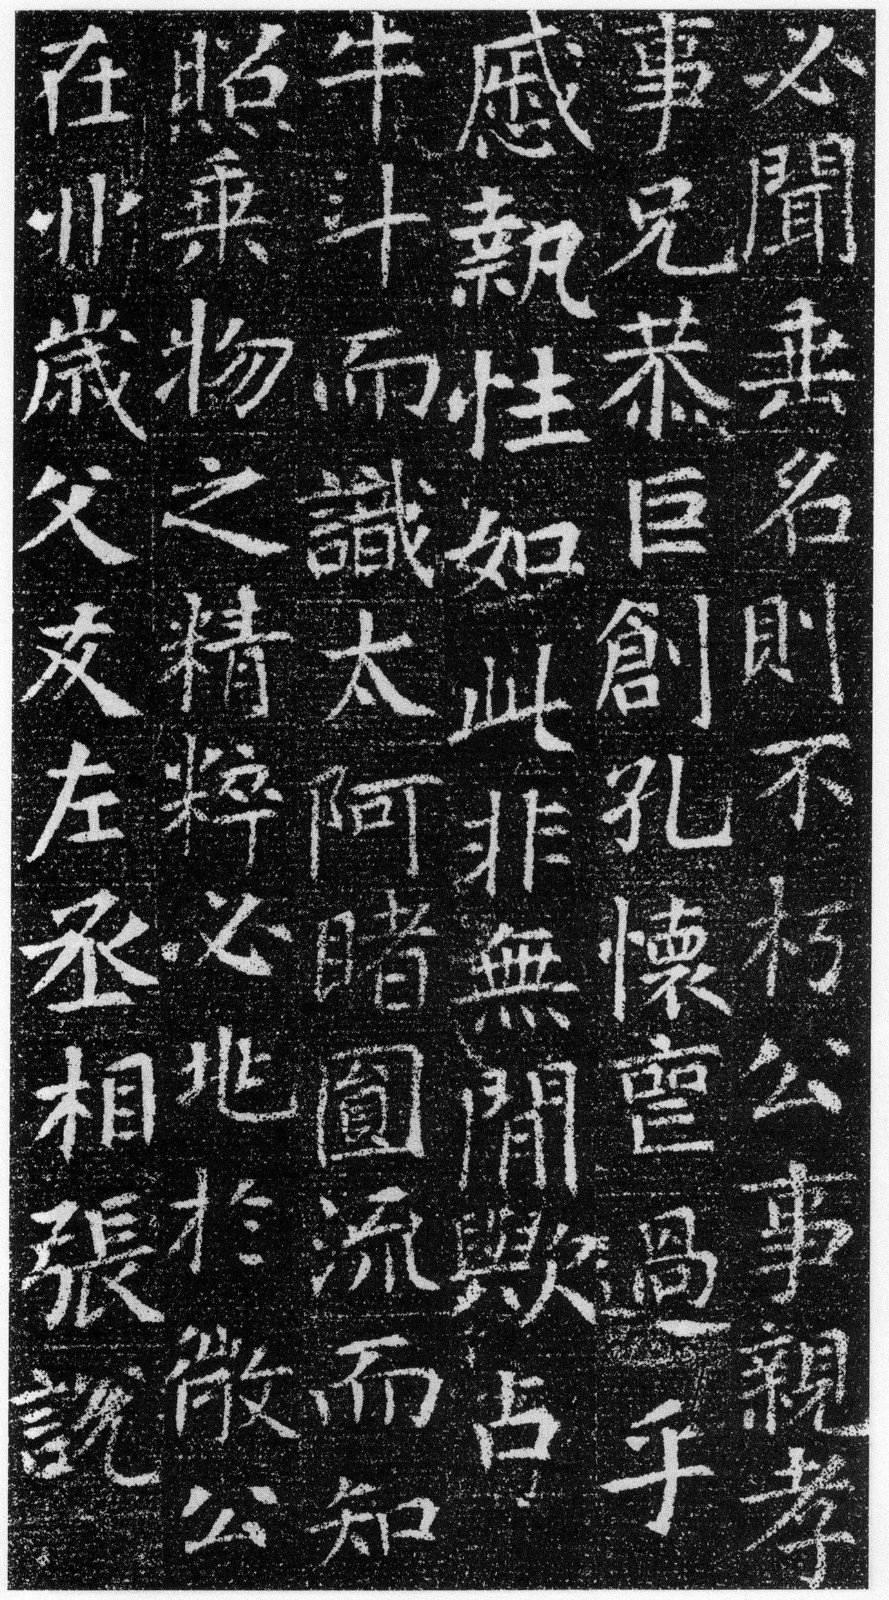 必聞垂名則不朽公事親孝
事兄恭巨創孔懷亶過乎
慼執性如此非無閒歟占
牛斗而識太阿睹圓流而知
照乘物之精粹必兆於微公
在丱歲父友左丞相張說